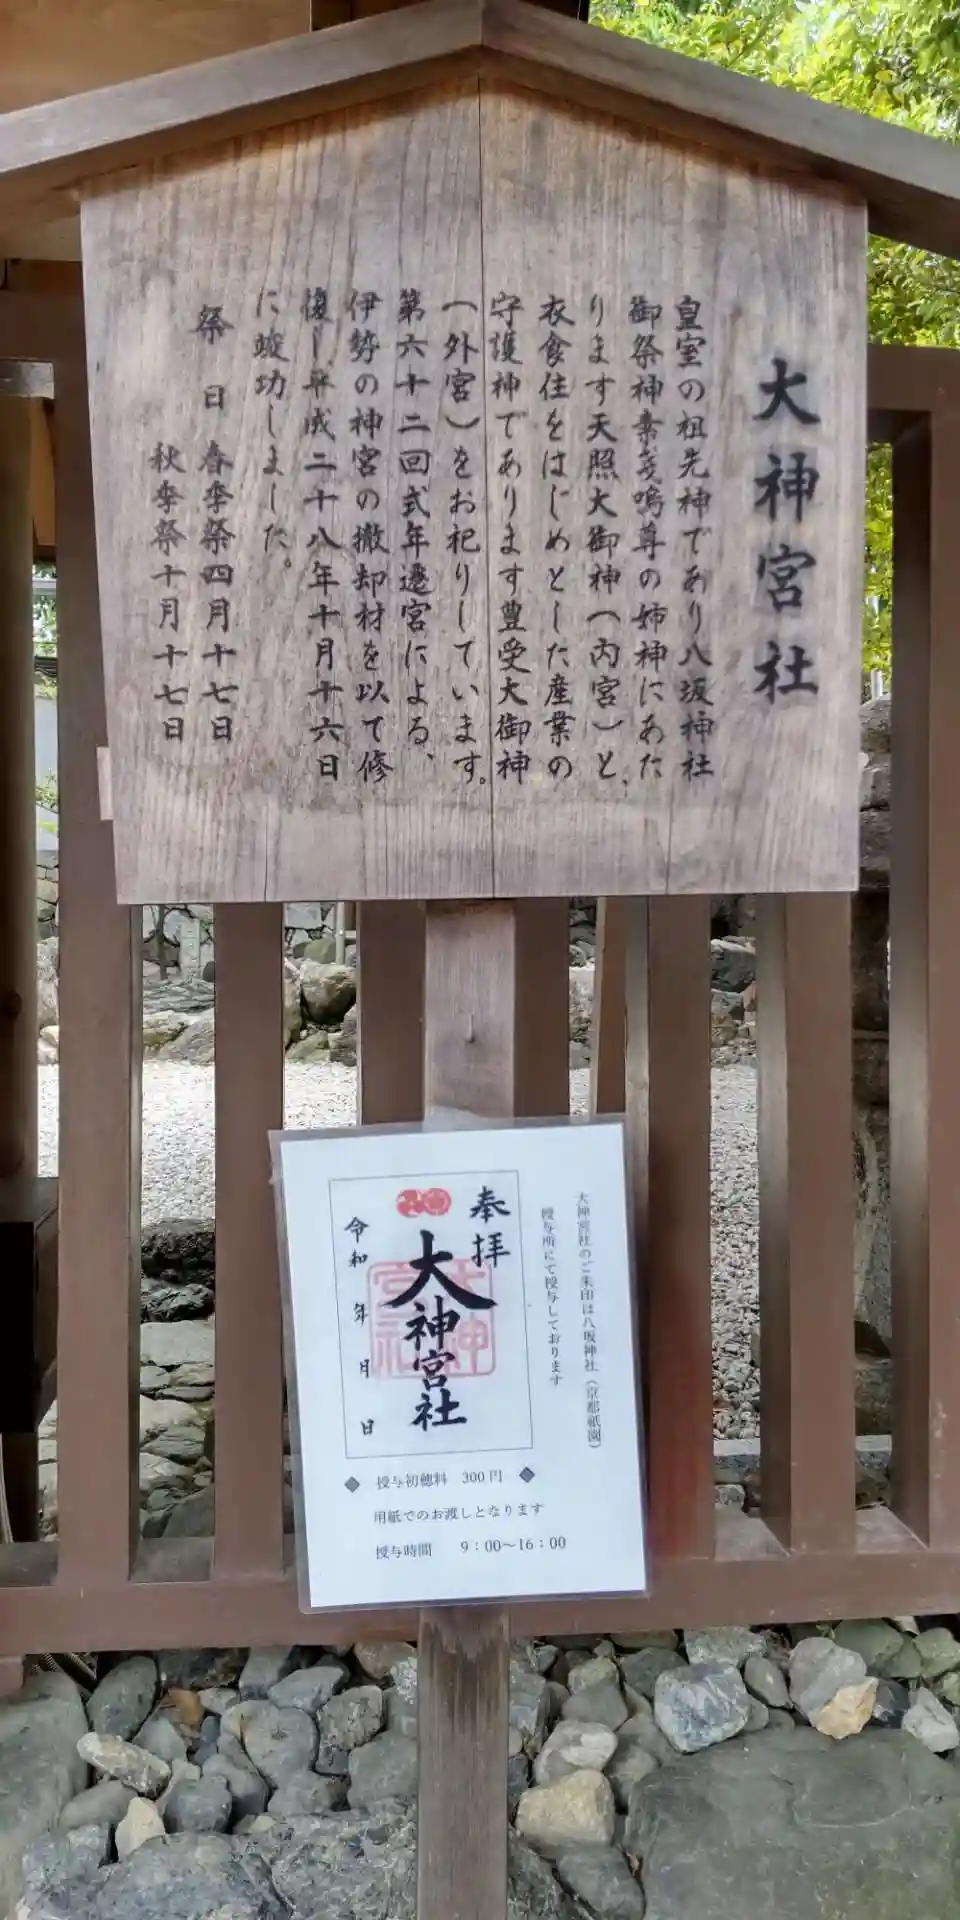 大神宮社
皇室の祖先神であり八坂神社
御祭神素戔嗚尊の姉神にあた
ります天照大御神(内宮)と、
衣食住をはじめとした産業の
守護神であります豊受大御神
(外宮)をお祀りしています。
第六十二回式年遷宮による、
伊勢の神宮の撤却材を以て修
復し平成二十八年十月十六日
に竣功しました。
祭 日 春季祭四月十七日
秋季祭十月十七日
大神宮社のご朱印は八坂神社(京都祇園)
授与所にて授与しております
奉拝
大神宮社
大神宮社
令和 年 月 日
◆ 授与初穂料 300円 ◆
用紙でのお渡しとなります
授与時間 9:00~16:00